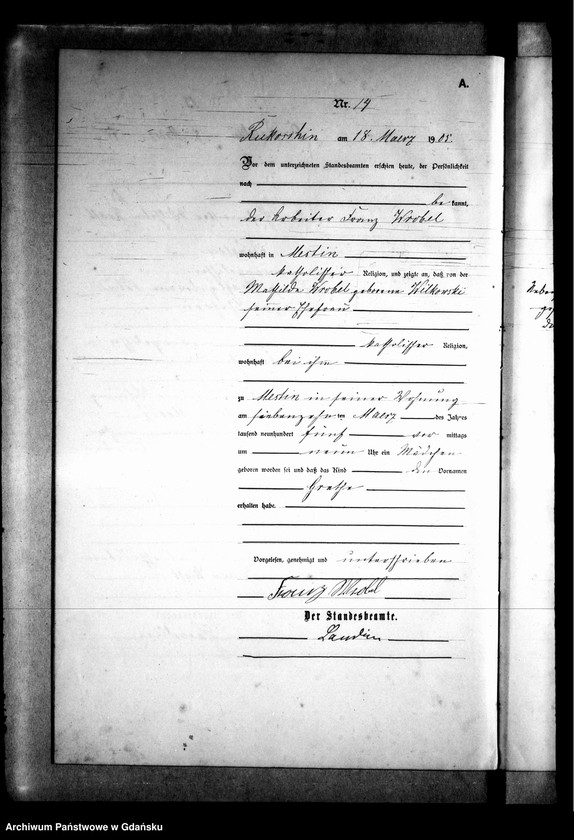 A.
Nr. 19
Rukoschin am 18 Maerz 1905.
Vor dem unterzeichneten Standesbeamten erschien heute, der Persönlichkeit
nach
be kannt,
der Arbeiter Franz Wrobel
wohnhaft in Mestin
katholischer Religion, und zeigte an, daß von der
Mathilde Wrobel geborene Wilkowski
seiner Ehefrau
katholischer Religion,
wohnhaft bei ihm
zu Mestin in seiner Wohnung
am siebenzehn ten Maerz des Jahres
tausend neunhundert fünf vor mittags
um neun Uhr ein Mädchen
geboren worden sei und daß das Kind den Vornamen
Grethe
erhalten habe.
Vorgelesen, genehmigt und unterschrieben
Franz Wrobel
Der Standesbeamte.
Archiwum Państwowe w Gdańsku